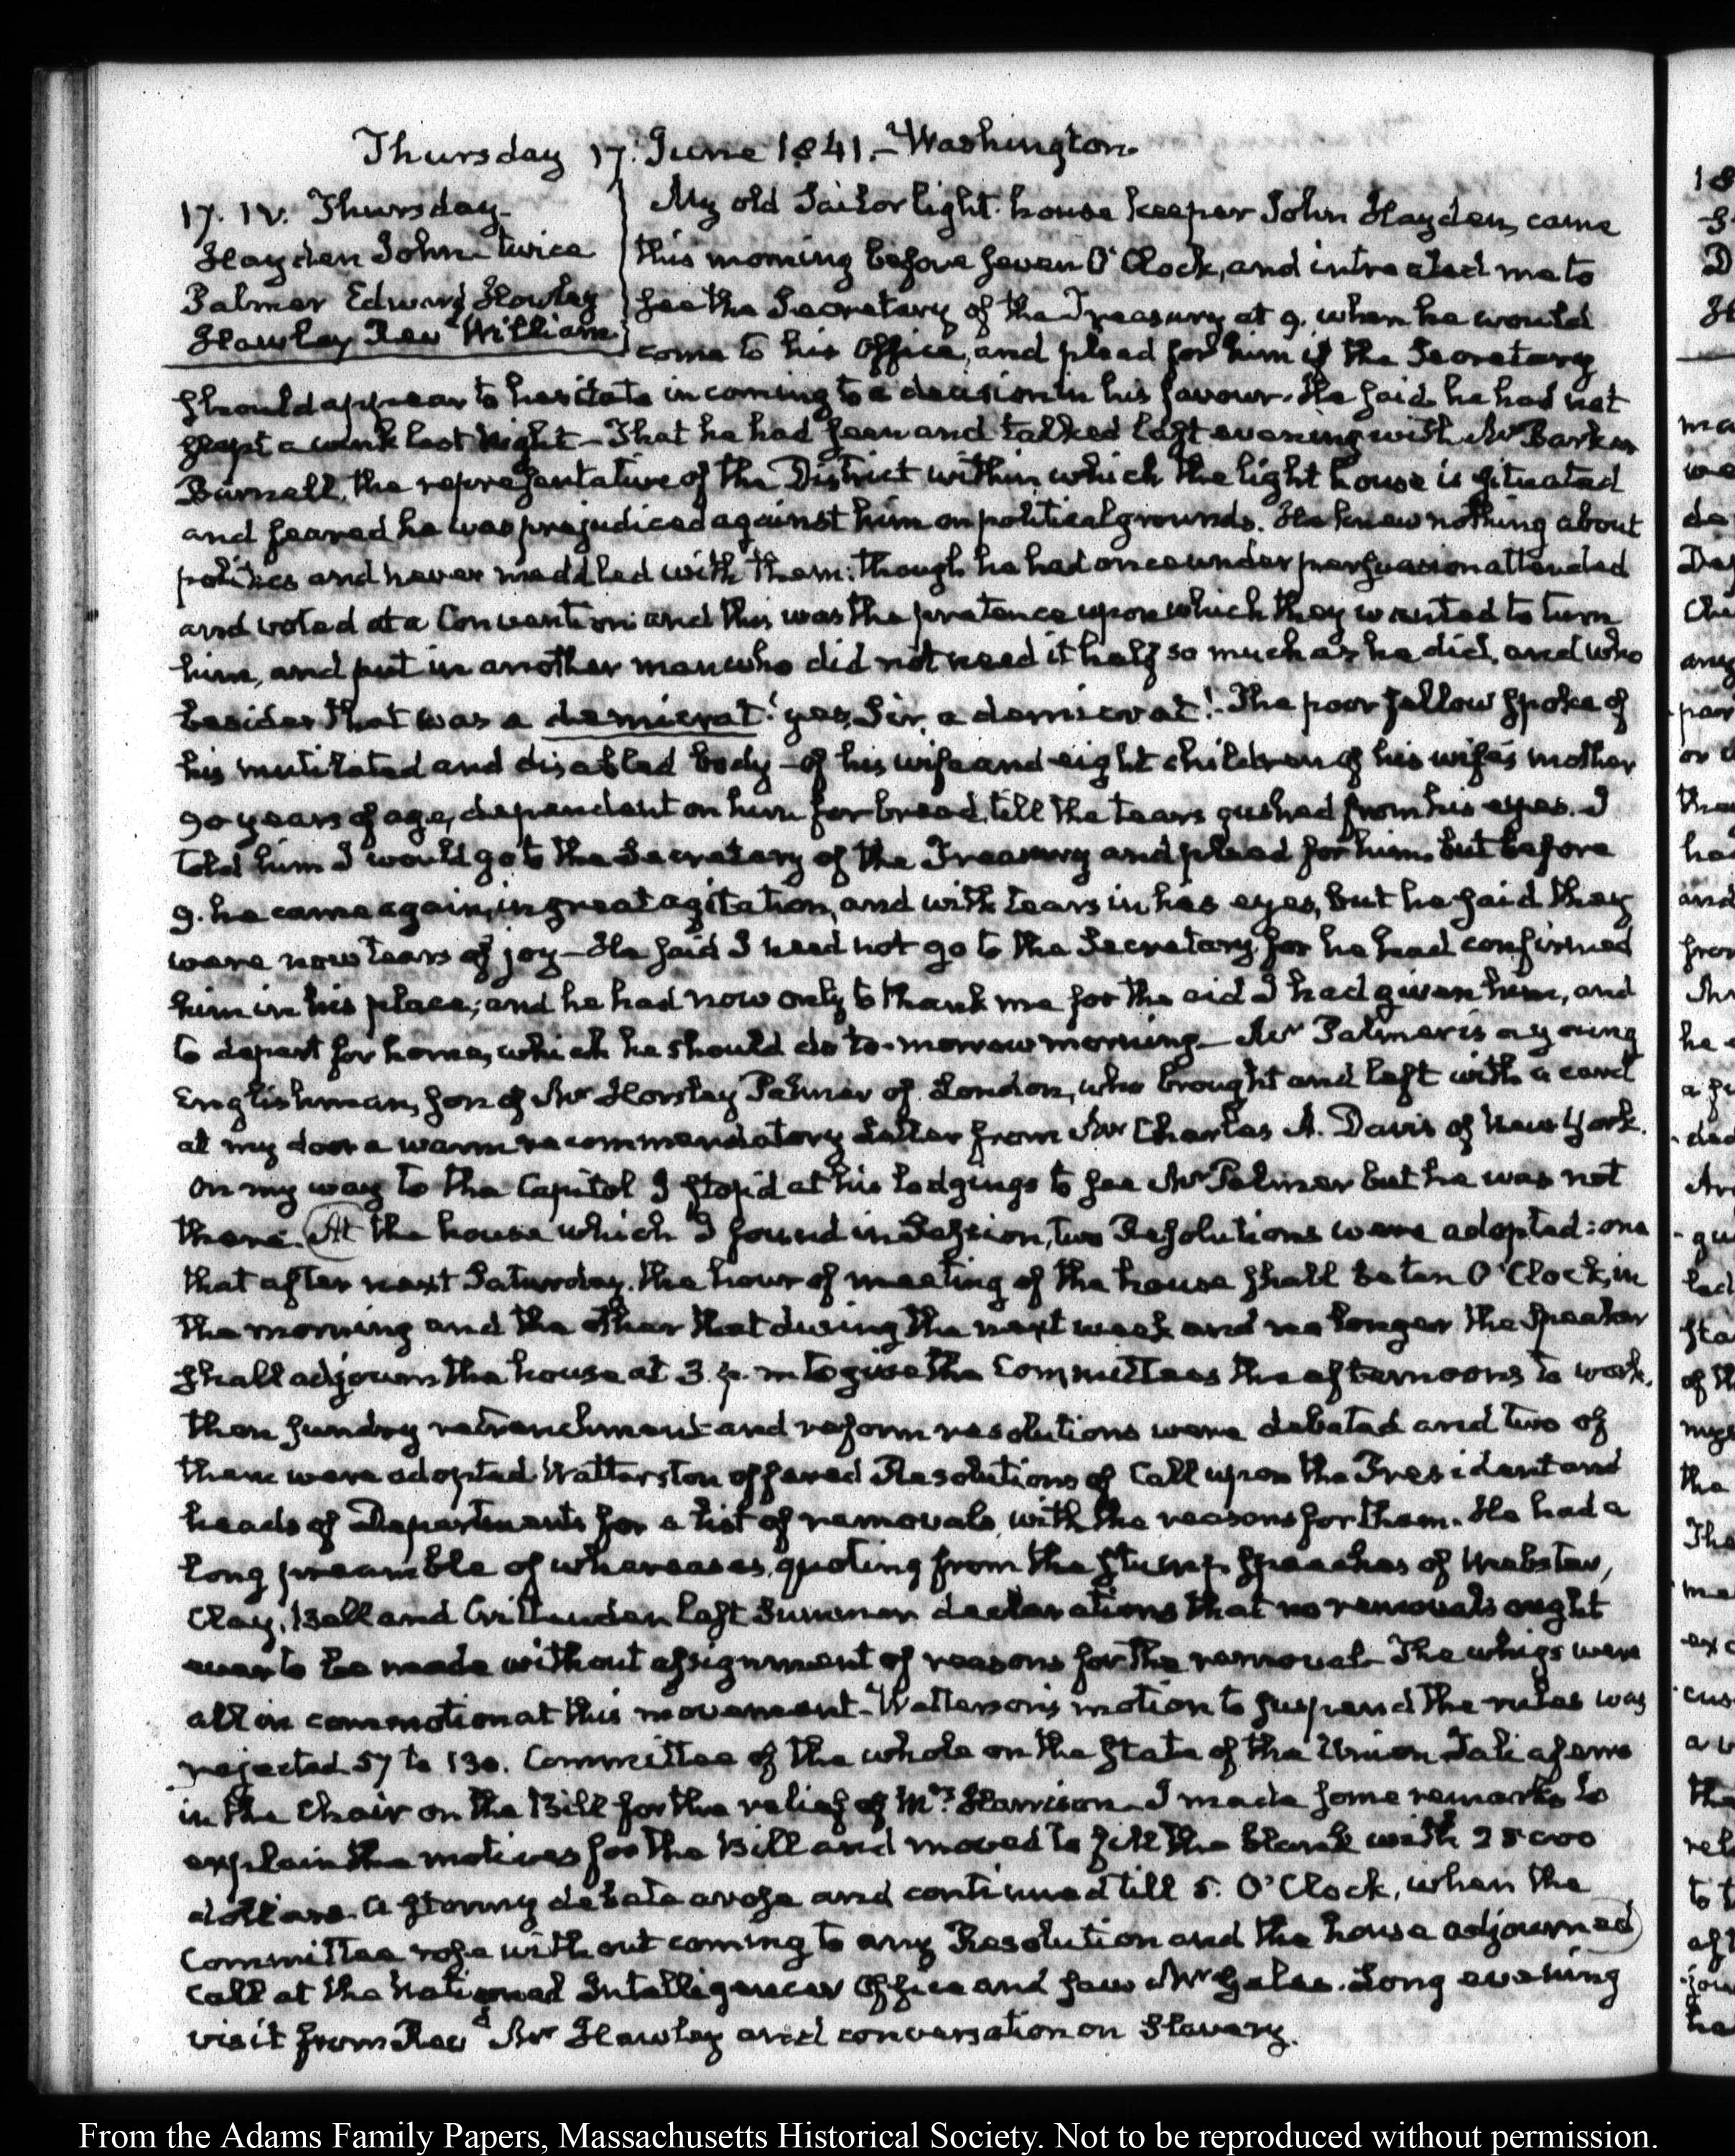 Thursday 17. June 1841.- Washington
17. IV. Thursday-
Hayden John twice
Palmer Edward Howley
Hawley Revd William
My old Sailor light-house keeper John Hayden, came
this morning before seven O'Clock, and intreated me to
see the Secretary of the Treasury at 9. when he would
come to his Office, and plead for him if the Secretary
should appear to hesitate in coming to a decision in his favour. He said he had not
slept a wink last Night- That he had seen and talked last evening with Mr Barker
Burnell, the representative of the District within which the light house is situated
and feared he was prejudiced against him on political grounds. He knew nothing about
politics and never meddled with them: though he had once under persuasion attended
and voted at a Convention: and this was the pretence upon which they wanted to turn
him, and put in another man who did not need it half so much as he did, and who
besides that was a demicrat! yes, Sir, a demicrat!- The poor fellow spoke of
his mutilated and disabled body - of his wife and eight children of his wife's mother
90 years of age, dependent on him for bread, till the tears gushed from his eyes. I
told him I would go to the Secretary of the Treasury and plead for him. but before
9. he came again, in great agitation, and with tears in his eyes, but he said they
were now tears of joy - He said I need not go to the Secretary, for he had confirmed
him in his place; and he had now only to thank me for the aid I had given him, and
to depart for home, which he should do to-morrow morning- Mr Palmer is a young
Englishman, son of Mr Horsley Palmer of London, who brought and left with a card
at my door a warm recommendatory Letter from Mr Charles A. Davis of New York.
On my way to the Capitol I stop'd at his lodgings to see Mr Palmer but he was not
there. At the house which I found in Session, two Resolutions were adopted: one
that after next Saturday, the hour of meeting of the house shall be ten O'Clock, in
the morning and the other that during the next week and no longer the Speaker
shall adjourn the house at 3. p.m to give the Committees the afternoons to work.
then sundry retrenchment and reform resolutions were debated and two of
them were adopted. Watterston offered Resolutions of Call upon the President and
heads of Departments for a list of removals, with the reasons for them. He had a
long preamble of whereases, quoting from the stump speeches of Webster,
Clay, Bell and Crittenden last Summer declarations that no removals ought
ever to be made without assignment of reasons for the removal- The whigs were
all in commotion at this movement- Watterson's motion to suspend the rules was
rejected 57 to 130. Committee of the whole on the state of the Union Taliaferro
in the Chair on the Bill for the relief of Mrs Harrison- I made some remarks to
explain the motives for the Bill and moved to fill the blank with 25000
dollars. A stormy debate arose and continued till 5. O'Clock, when the
Committee rose without coming to any Resolution and the house adjourned
Call at the National Intelligencer Office and saw Mr Gales. Long evening
visit from Revd Mr Hawley and conversation on Slavery.
From the Adams Family Papers, Massachusetts Historical Society. Not to be reproduced without permission.